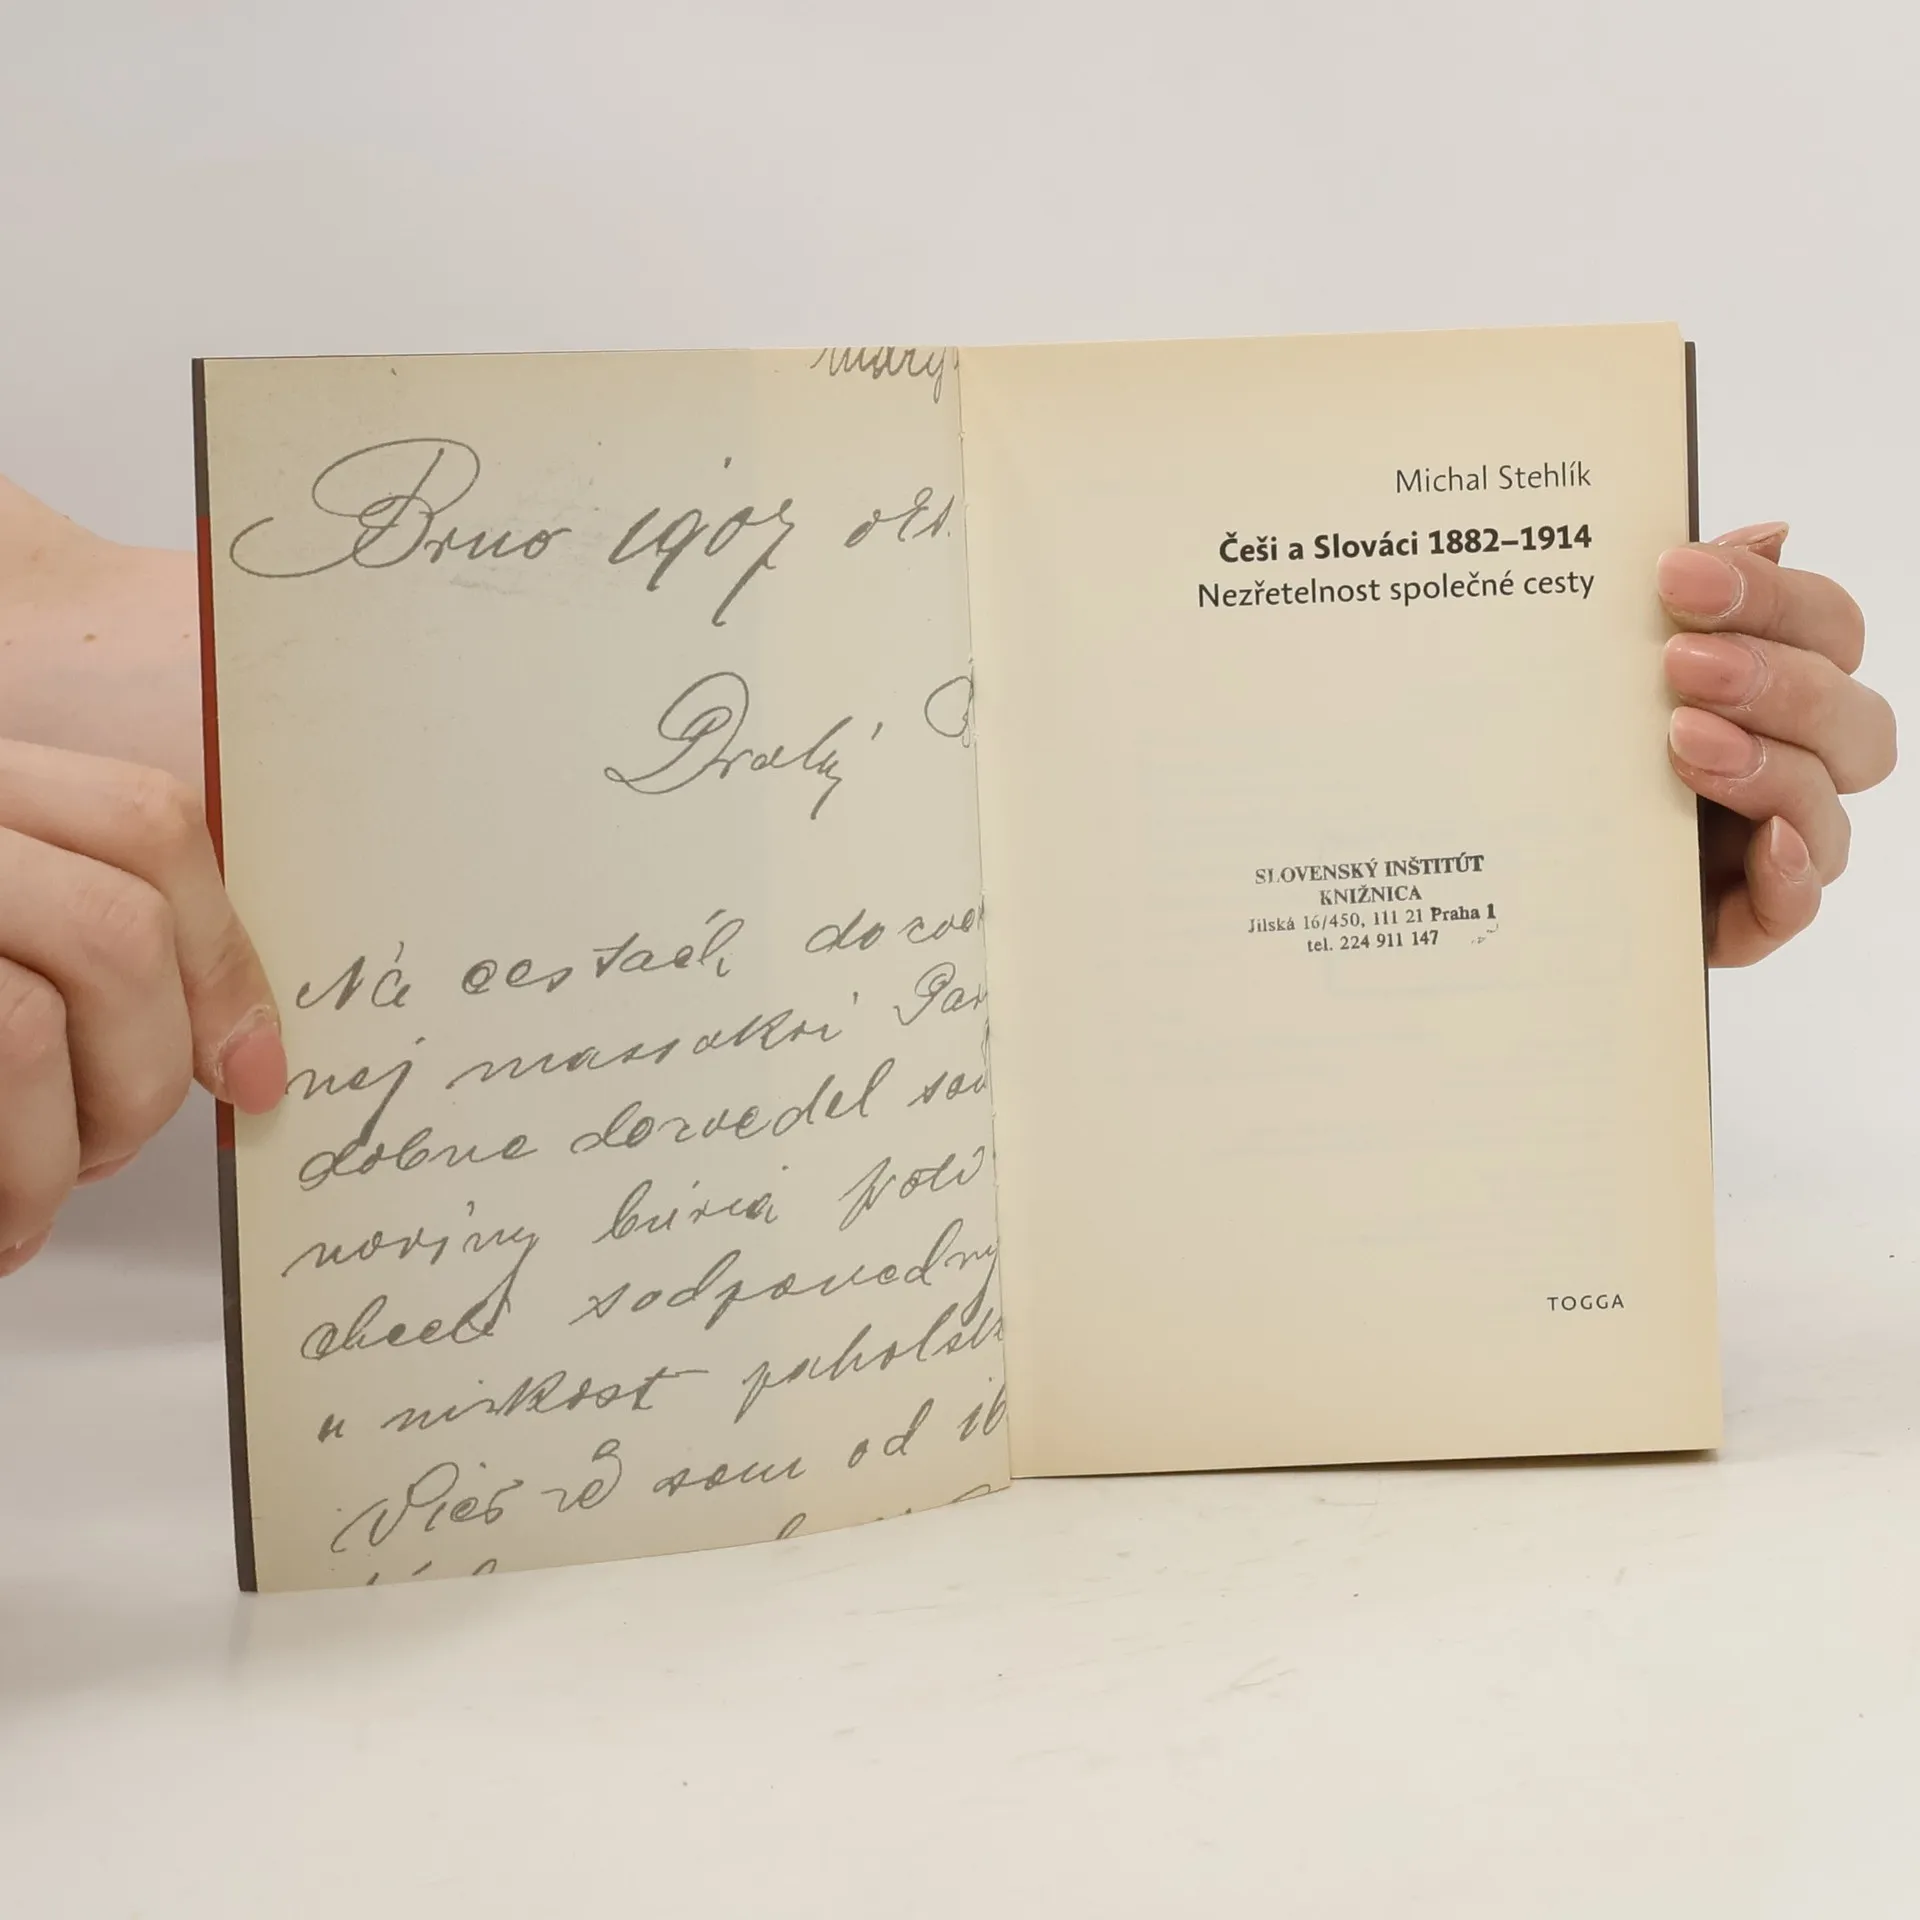 Brno 1907 okt.
Drahý
Na cestách dozve
nej massakri
dobne dozvedel som
noviny búria proti
chceli zodpovedny
nizkosť
Vieš že som od 16
Michal Stehlík
Češi a Slováci 1882–1914
Nezřetelnost společné cesty
SLOVENSKÝ INŠTITÚT
KNIŽNICA
Jilská 16/450, 111 21 Praha 1
tel. 224 911 147
TOGGA